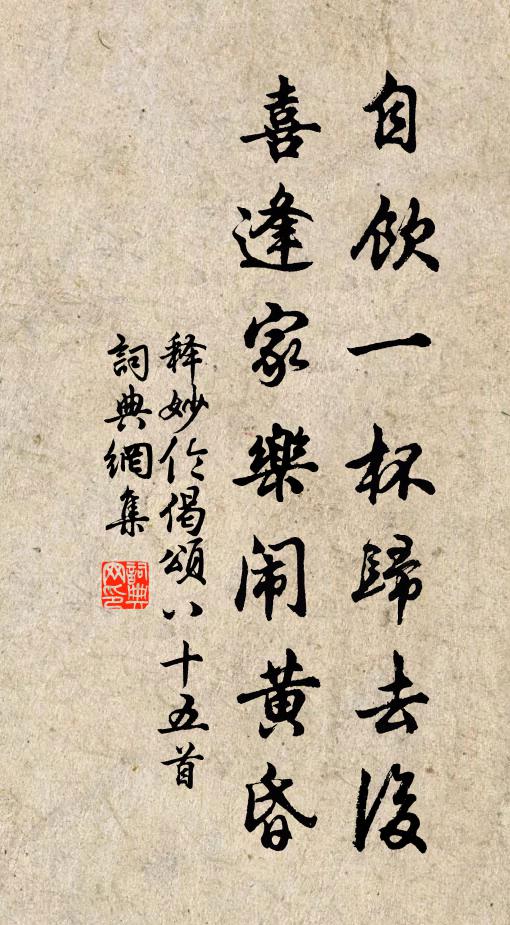 自飲一杯歸去後
喜逢家樂闹黄昏
释妙伦偈頌八十五首
詞典網集
詞典网印